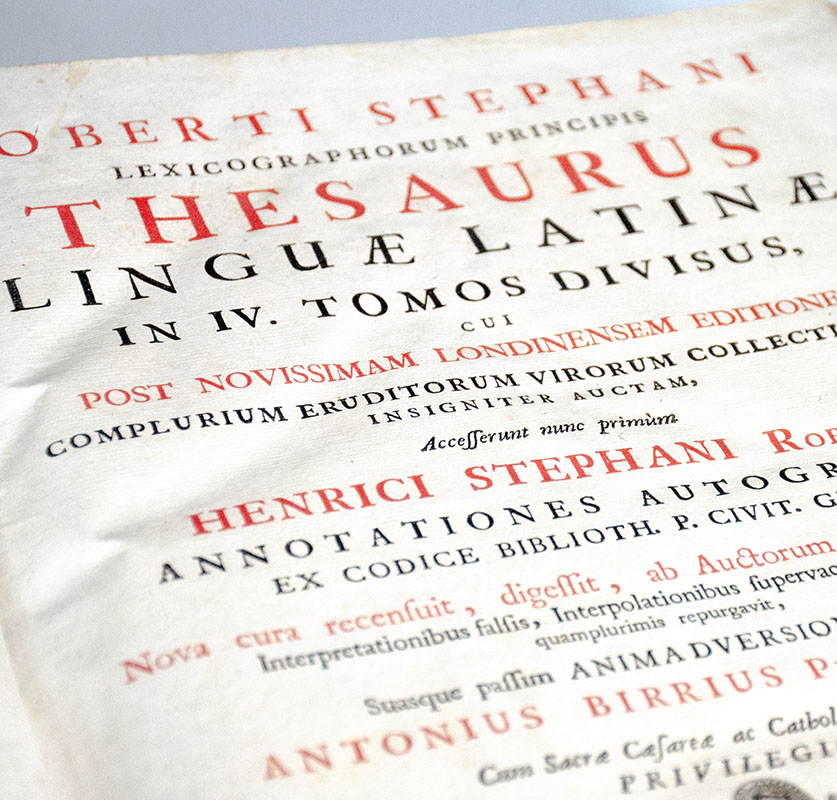 OBERTI STEPHANI
LEXICOGRAPHORUM PRINCIPIS
THESAURUS
LINGUÆ LATINÆ
IN IV. TOMOS DIVISUS,
CUI
POST NOVISSIMAM LONDINENSEM EDITIONE
COMPLURIUM ERUDITORUM VIRORUM COLLECTI
INSIGNITER AUCTAM,
Acceſſerunt nunc primùm
HENRICI STEPHANI ROB
ANNOTATIONES AUTOGR
EX CODICE BIBLIOTH. P. CIVIT. G
Nova cura recenſuit, digeſſit, ab Auctorum
Interpretationibus falſis, Interpolationibus ſupervac
quamplurimis repurgavit,
Suasque paſſim ANIMADVERSION
ANTONIUS BIRRIUS P
Cum Sacræ Cæſareæ ac Cathol
PRIVILEGI